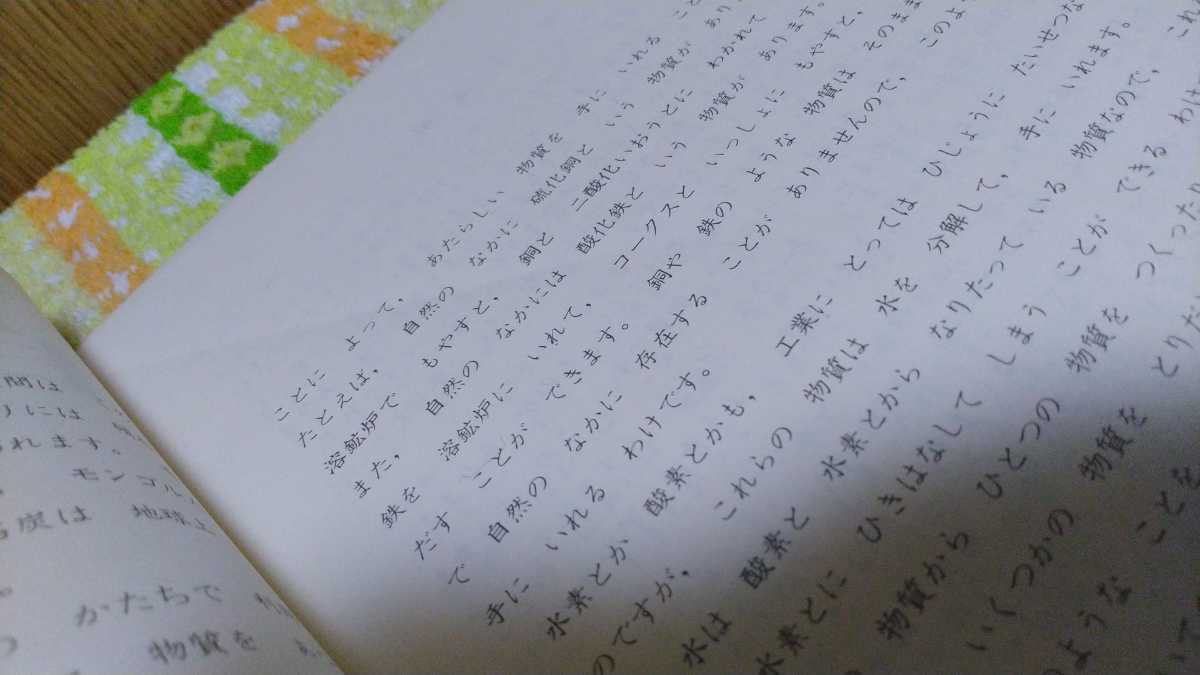 間は
には
れます。
モンゴル
炭は 地球上
かたちで
物質を
ことに よって、 あたらしい 物質を 手に いれる こと
たとえば、 自然の なかに 硫化銅と いう 物質が あり
溶鉱炉で もやすと、 銅と 二酸化いおうとに わかれて
また、 自然の なかには 酸化鉄と いう 物質が あります。
鉄を 溶鉱炉に いれて、 コークスと いっしょに もやすと、
だす ことが できます。 銅や 鉄の ような 物質は そのまま
で 自然の なかに 存在する ことが ありませんので、 このよう
手に いれる わけです。
水素とか 酸素とかも、 工業に とっては ひじょうに たいせつな
のですが、 これらの 物質は 水を 分解して、 手に いれます。
水は 酸素と 水素とから なりたって いる 物質なので、 これ
水素とに ひきはなして しまう ことが できる わけ
物質から ひとつの 物質を つくったり
いくつかの 物質を とりだ
のような ことを